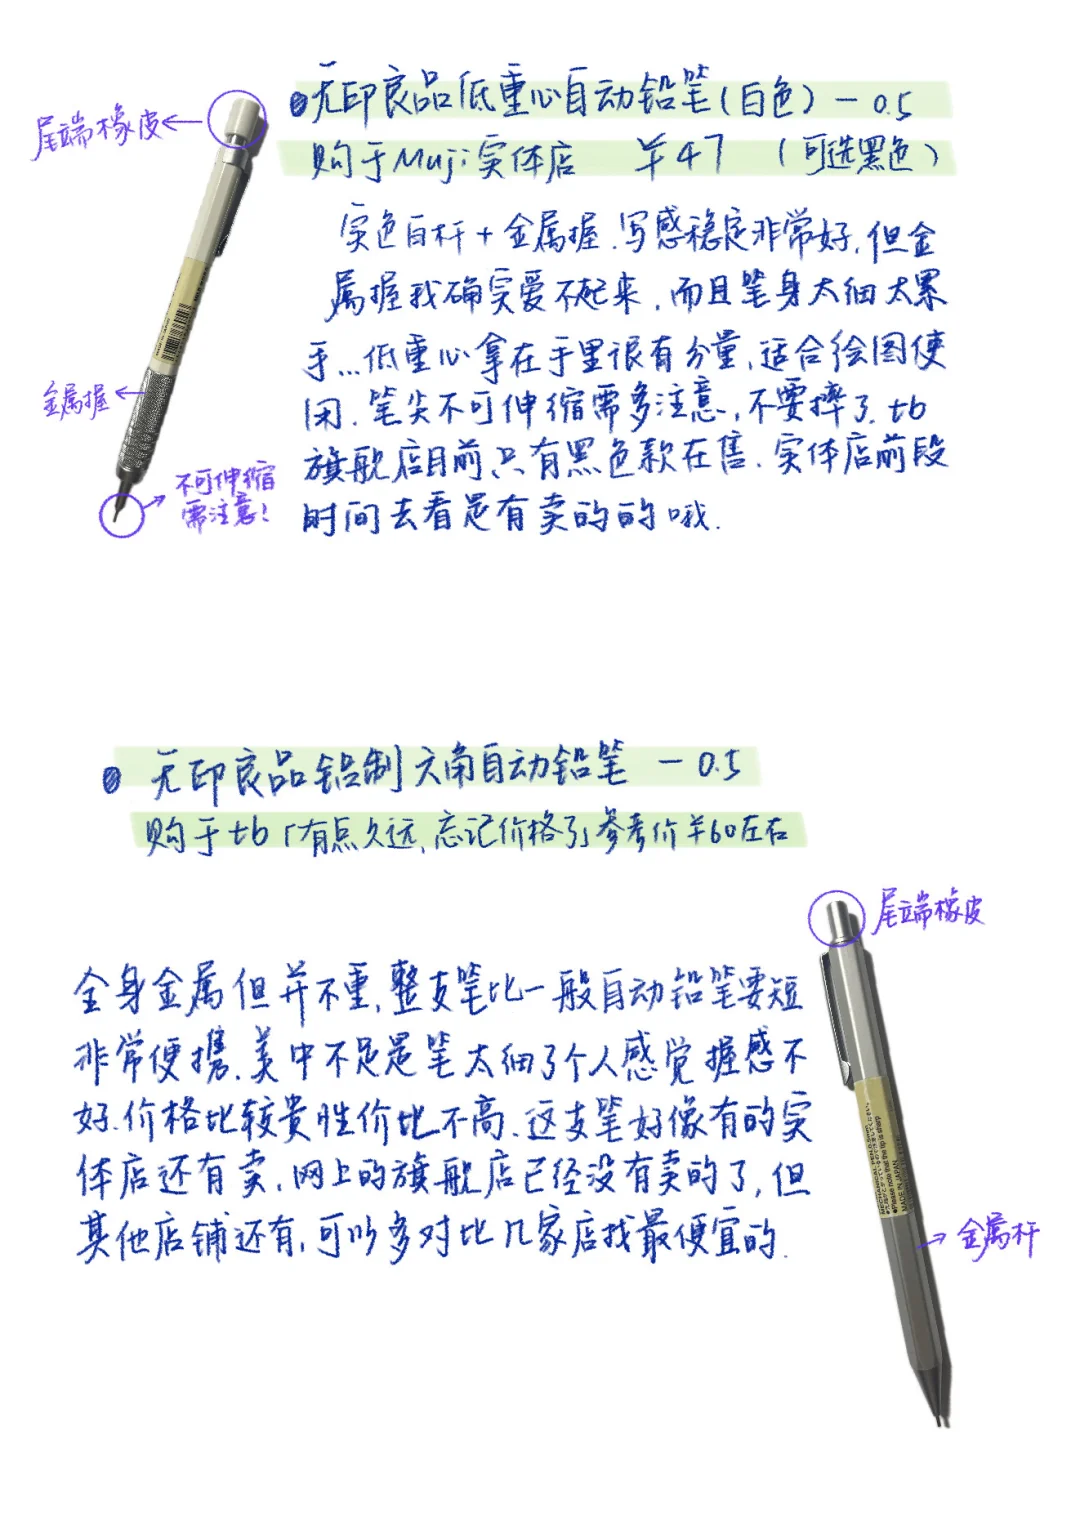 无印良品低重心自动铅笔(白色) — 0.5
购于Muji实体店 ￥47 (可选黑色)
尾端橡皮
实色白杆+金属握.写感稳定非常好,但金
属握我确实爱不起来,而且笔身太细太累
手...低重心拿在手里很有分量,适合绘图使
闭.笔尖不可伸缩需多注意,不要摔了.tb
旗舰店目前只有黑色款在售.实体店前段
时间去看是有卖的的哦.
金属握
不可伸缩
需注意!
无印良品铝制六角自动铅笔 — 0.5
购于tb「有点久远,忘记价格了」参考价￥60左右
尾端橡皮
全身金属但并不重,整支笔比一般自动铅笔要短
非常便携.美中不足是笔太细了个人感觉握感不
好.价格比较贵性价比不高.这支笔好像有的实
体店还有卖,网上的旗舰店已经没有卖的了,但
其他店铺还有,可以多对比几家店找最便宜的.
MECHANICAL PEN 0.5mm
Please note that the tip is sharp
MADE IN JAPAN
金属杆